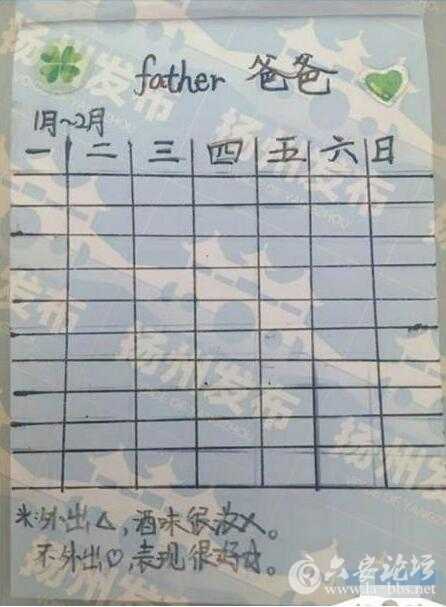 father 爸爸
1月~2月
一 二 三 四 五 六 日
米:外出△,酒味很浓X。
不外出♡,表现很好
扬州发布
扬州发布
扬州发布
六安论坛
la-bbs.net